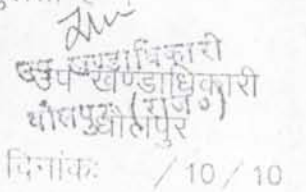 उप खण्डाधिकारी
उप खण्डाधिकारी
धौलपुर (राज०)
धौलपुर
दिनांकः / 10 / 10